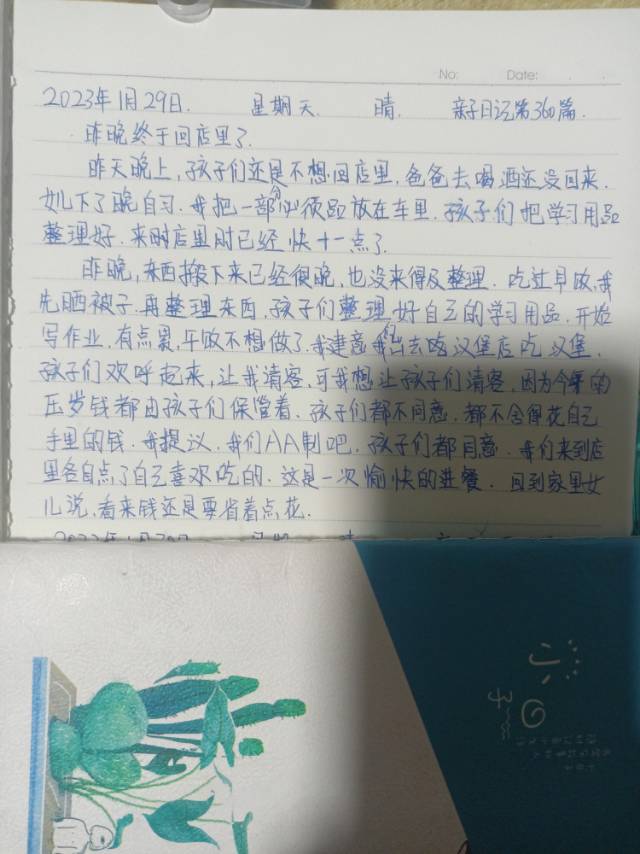 No:   Date:   .   .
2023年1月29日.   星期天.   晴.   亲子日记第360篇.
昨晚终于回店里了.
昨天晚上,孩子们还是不想回店里,爸爸去喝酒还没回来.
女儿下了晚自习.我把一部分必须品放在车里.孩子们把学习用品
整理好.来时店里时已经快十一点了.
昨晚,东西搬下来已经很晚,也没来得及整理.吃过早饭,我
先晒被子.再整理东西.孩子们整理好自己的学习用品.开始
写作业,有点累,午饭不想做了.我建意我们出去吃汉堡店吃汉堡.
孩子们欢呼起来,让我请客.可我想让孩子们请客,因为今年的
压岁钱都由孩子们保管着.孩子们都不同意.都不舍得花自己
手里的钱.我提议,我们AA制吧.孩子们都同意.我们来到店
里各自点了自己喜欢吃的.这是一次愉快的进餐.回到家里女
儿说,看来钱还是要省着点花.